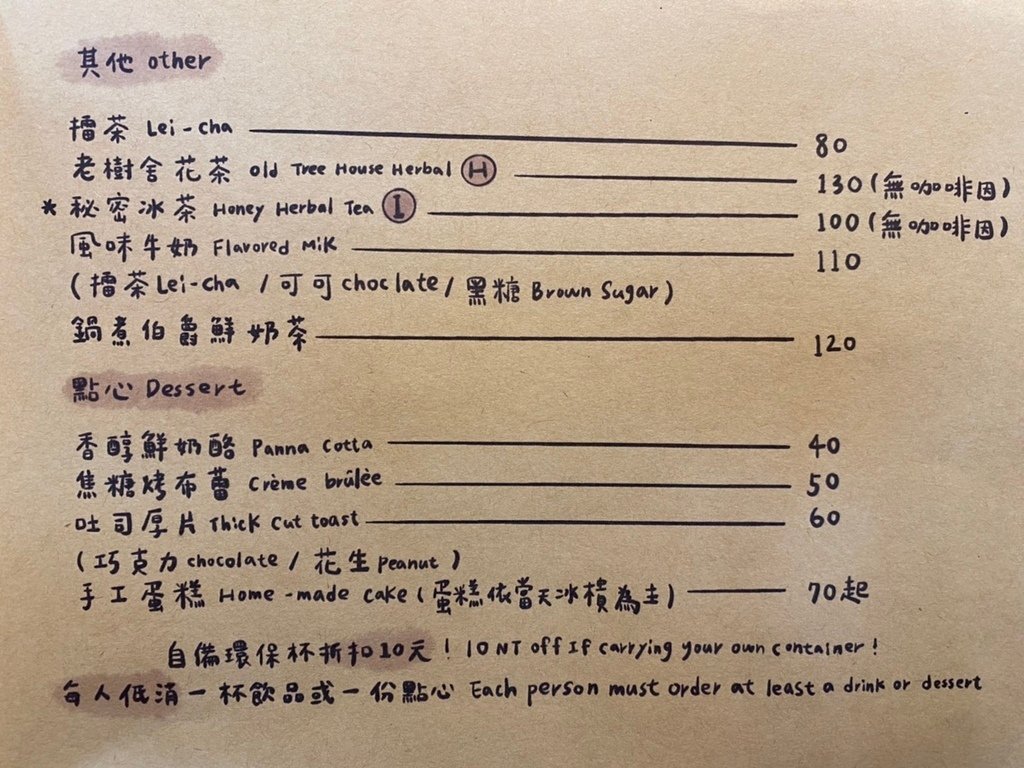 其他 other
擂茶 Lei-cha 80
老樹舍花茶 Old Tree House Herbal H 130 (無咖啡因)
* 秘密冰茶 Honey Herbal Tea I 100 (無咖啡因)
風味牛奶 Flavored Milk 110
(擂茶 Lei-cha / 可可 choclate / 黑糖 Brown Sugar)
鍋煮伯爵鮮奶茶 120
點心 Dessert
香醇鮮奶酪 Panna Cotta 40
焦糖烤布蕾 Crème brûlèe 50
吐司厚片 Thick Cut toast 60
(巧克力 chocolate / 花生 peanut)
手工蛋糕 Home-made cake (蛋糕依當天冰櫃為主) 70起
自備環保杯折扣10元! 10 NT off If carrying your own container!
每人低消一杯飲品或一份點心 Each person must order at least a drink or dessert